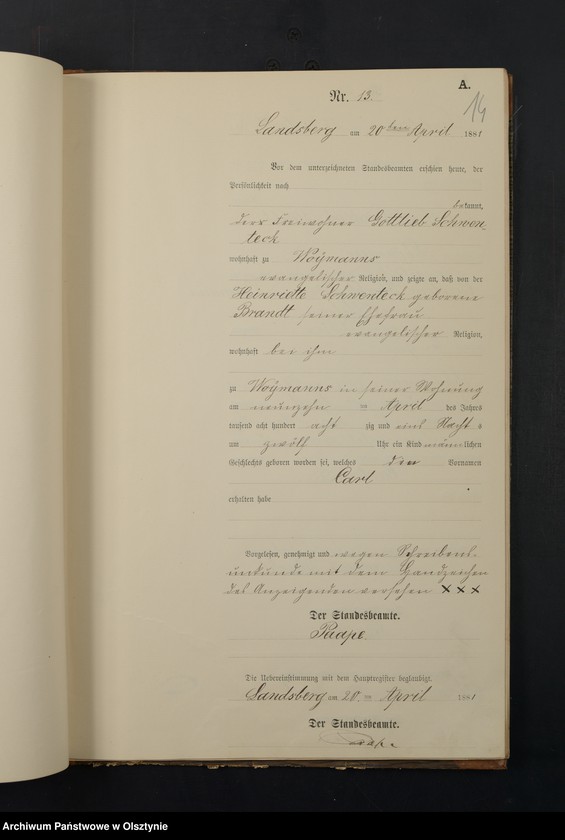 A.
14
Nr. 13.
Landsberg am 20ten April 1881
Vor dem unterzeichneten Standesbeamten erschien heute, der
Persönlichkeit nach
bekannt,
der Freiwohner Gottlieb Schwen-
teck
wohnhaft zu Woÿmanns
evangelischer Religion, und zeigte an, daß von der
Heinriette Schwenteck geborene
Brandt seiner Ehefrau
evangelischer Religion,
wohnhaft bei ihm
zu Woÿmanns in seiner Wohnung
am neunzehn = April des Jahres
tausend acht hundert acht zig und eins Nacht s
um zwölf Uhr ein Kind männlichen
Geschlechts geboren worden sei, welches den Vornamen
Carl
erhalten habe
Vorgelesen, genehmigt und wegen Schreibens-
unkunde mit dem Handzeichen
des Anzeigenden versehen XXX
Der Standesbeamte.
Paape.
Die Uebereinstimmung mit dem Hauptregister beglaubigt.
Landsberg am 20. = April 1881
Der Standesbeamte.
Paape
Archiwum Państwowe w Olsztynie